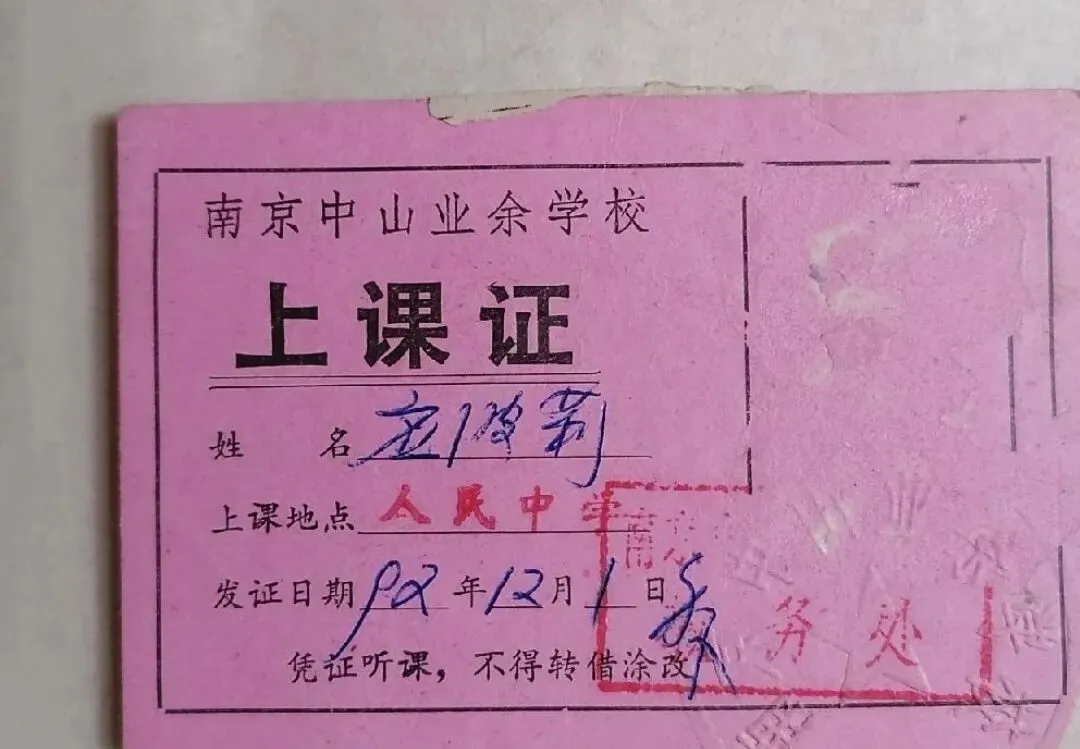 南京中山业余学校
上课证
姓 名 应俊莉
上课地点 人民中学
发证日期 92 年 12 月 1 日
凭证听课，不得转借涂改
南京
务处